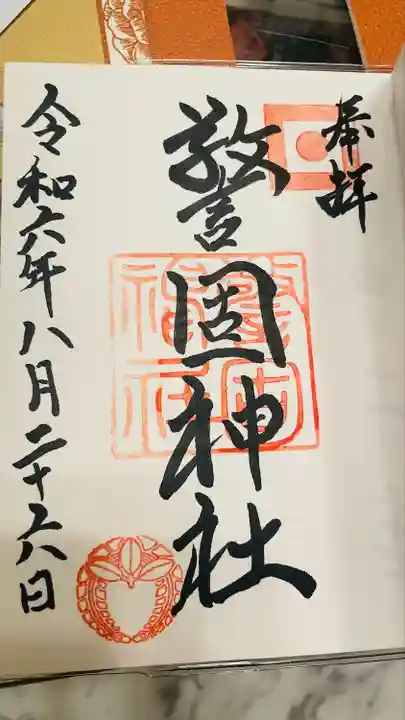 奉拝
警固神社
令和六年八月二十六日